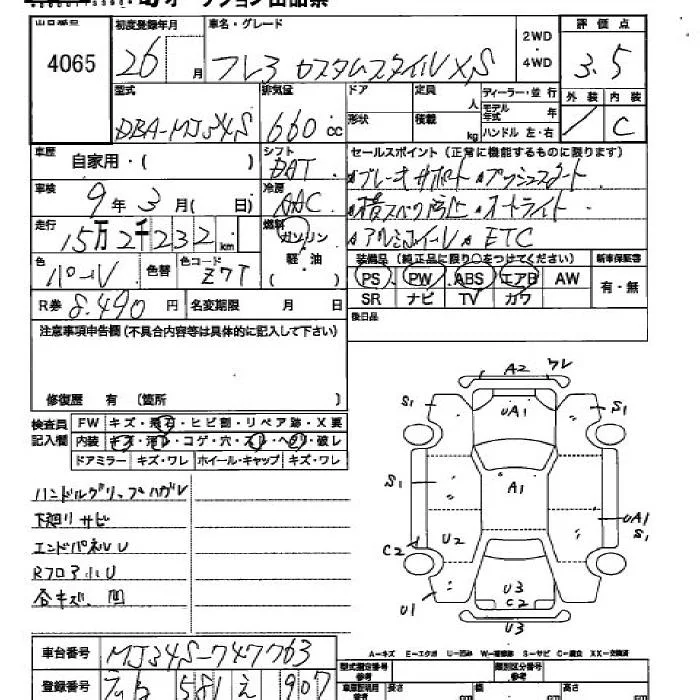 オークション出品票
出品番号 初度登録年月 車名・グレード 2WD・4WD 評価点
4065 26 月 フレア カスタムスタイル XS 3.5
型式 排気量 ドア 定員 人 ディーラー・並行 外装 内装
DBA-MJ34S 660 cc 形状 積載 kg モデル年式 年 ハンドル 左・右 / C
車歴 自家用・( ) シフト DAT セールスポイント(正常に機能するものに限ります)
ブレーキサポート プッシュスタート
車検 9年3月( 日) 冷房 AAC
横スベリ防止 オートライト
走行 15万2千232 km 燃料 ガソリン 軽・油 ( )
アルミホイール ETC
色 パール 色替 色コード Z7T
装備品(純正品に限り○をつけてください) 新車保証書
PS PW ABS エアB AW 有・無
SR ナビ TV カワ
R券 8.490 円 名変期限 月 日 後日品
注意事項申告欄(不具合内容等は具体的に記入して下さい)
修復歴 有 〔箇所 〕
検査員記入欄 FW キズ・飛石・ヒビ割・リペア跡・X要
内装 キズ・汚レ・コゲ・穴・スレ・ヘタリ・破レ
ドアミラー キズ・ワレ ホイール・キャップ キズ・ワレ
ハンドルグリップハガレ
下廻りサビ
エンドパネルU
RフロアU
各キズ、凹
A2 ワレ
S1 UA1 S1
S1 A1
UA1 S1
C2 U2
U1 U3 C2
U3
A-キズ E-エクボ U-凹み W-補修跡 S-サビ C-腐食 XX-交換済
車台番号 MJ34S-747763
型式指定番号 参考 類別区分番号 参考
登録番号 581 え 907
長さ cm 幅 cm 高さ cm